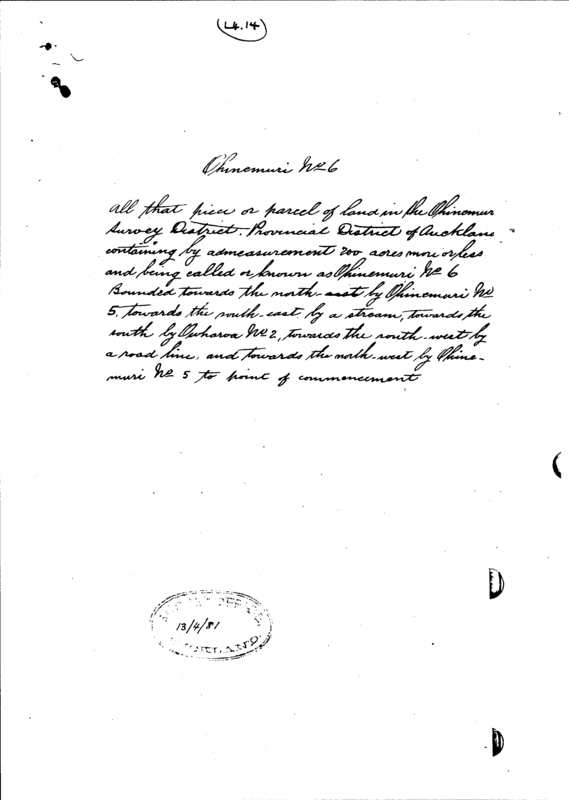 L4.14
Ohinemuri No 6
All that piece or parcel of land in the Ohinemuri
Survey District, Provincial District of Auckland
containing by admeasurement 200 acres more or less
and being called or known as Ohinemuri No 6
Bounded towards the north-east by Ohinemuri No
5, towards the south-east by a stream, towards the
south by Owharoa No 2, towards the south-west by
a road line, and towards the north-west by Ohine-
muri No 5 to point of commencement
SURVEY OFFICE
13/4/81
AUCKLAND